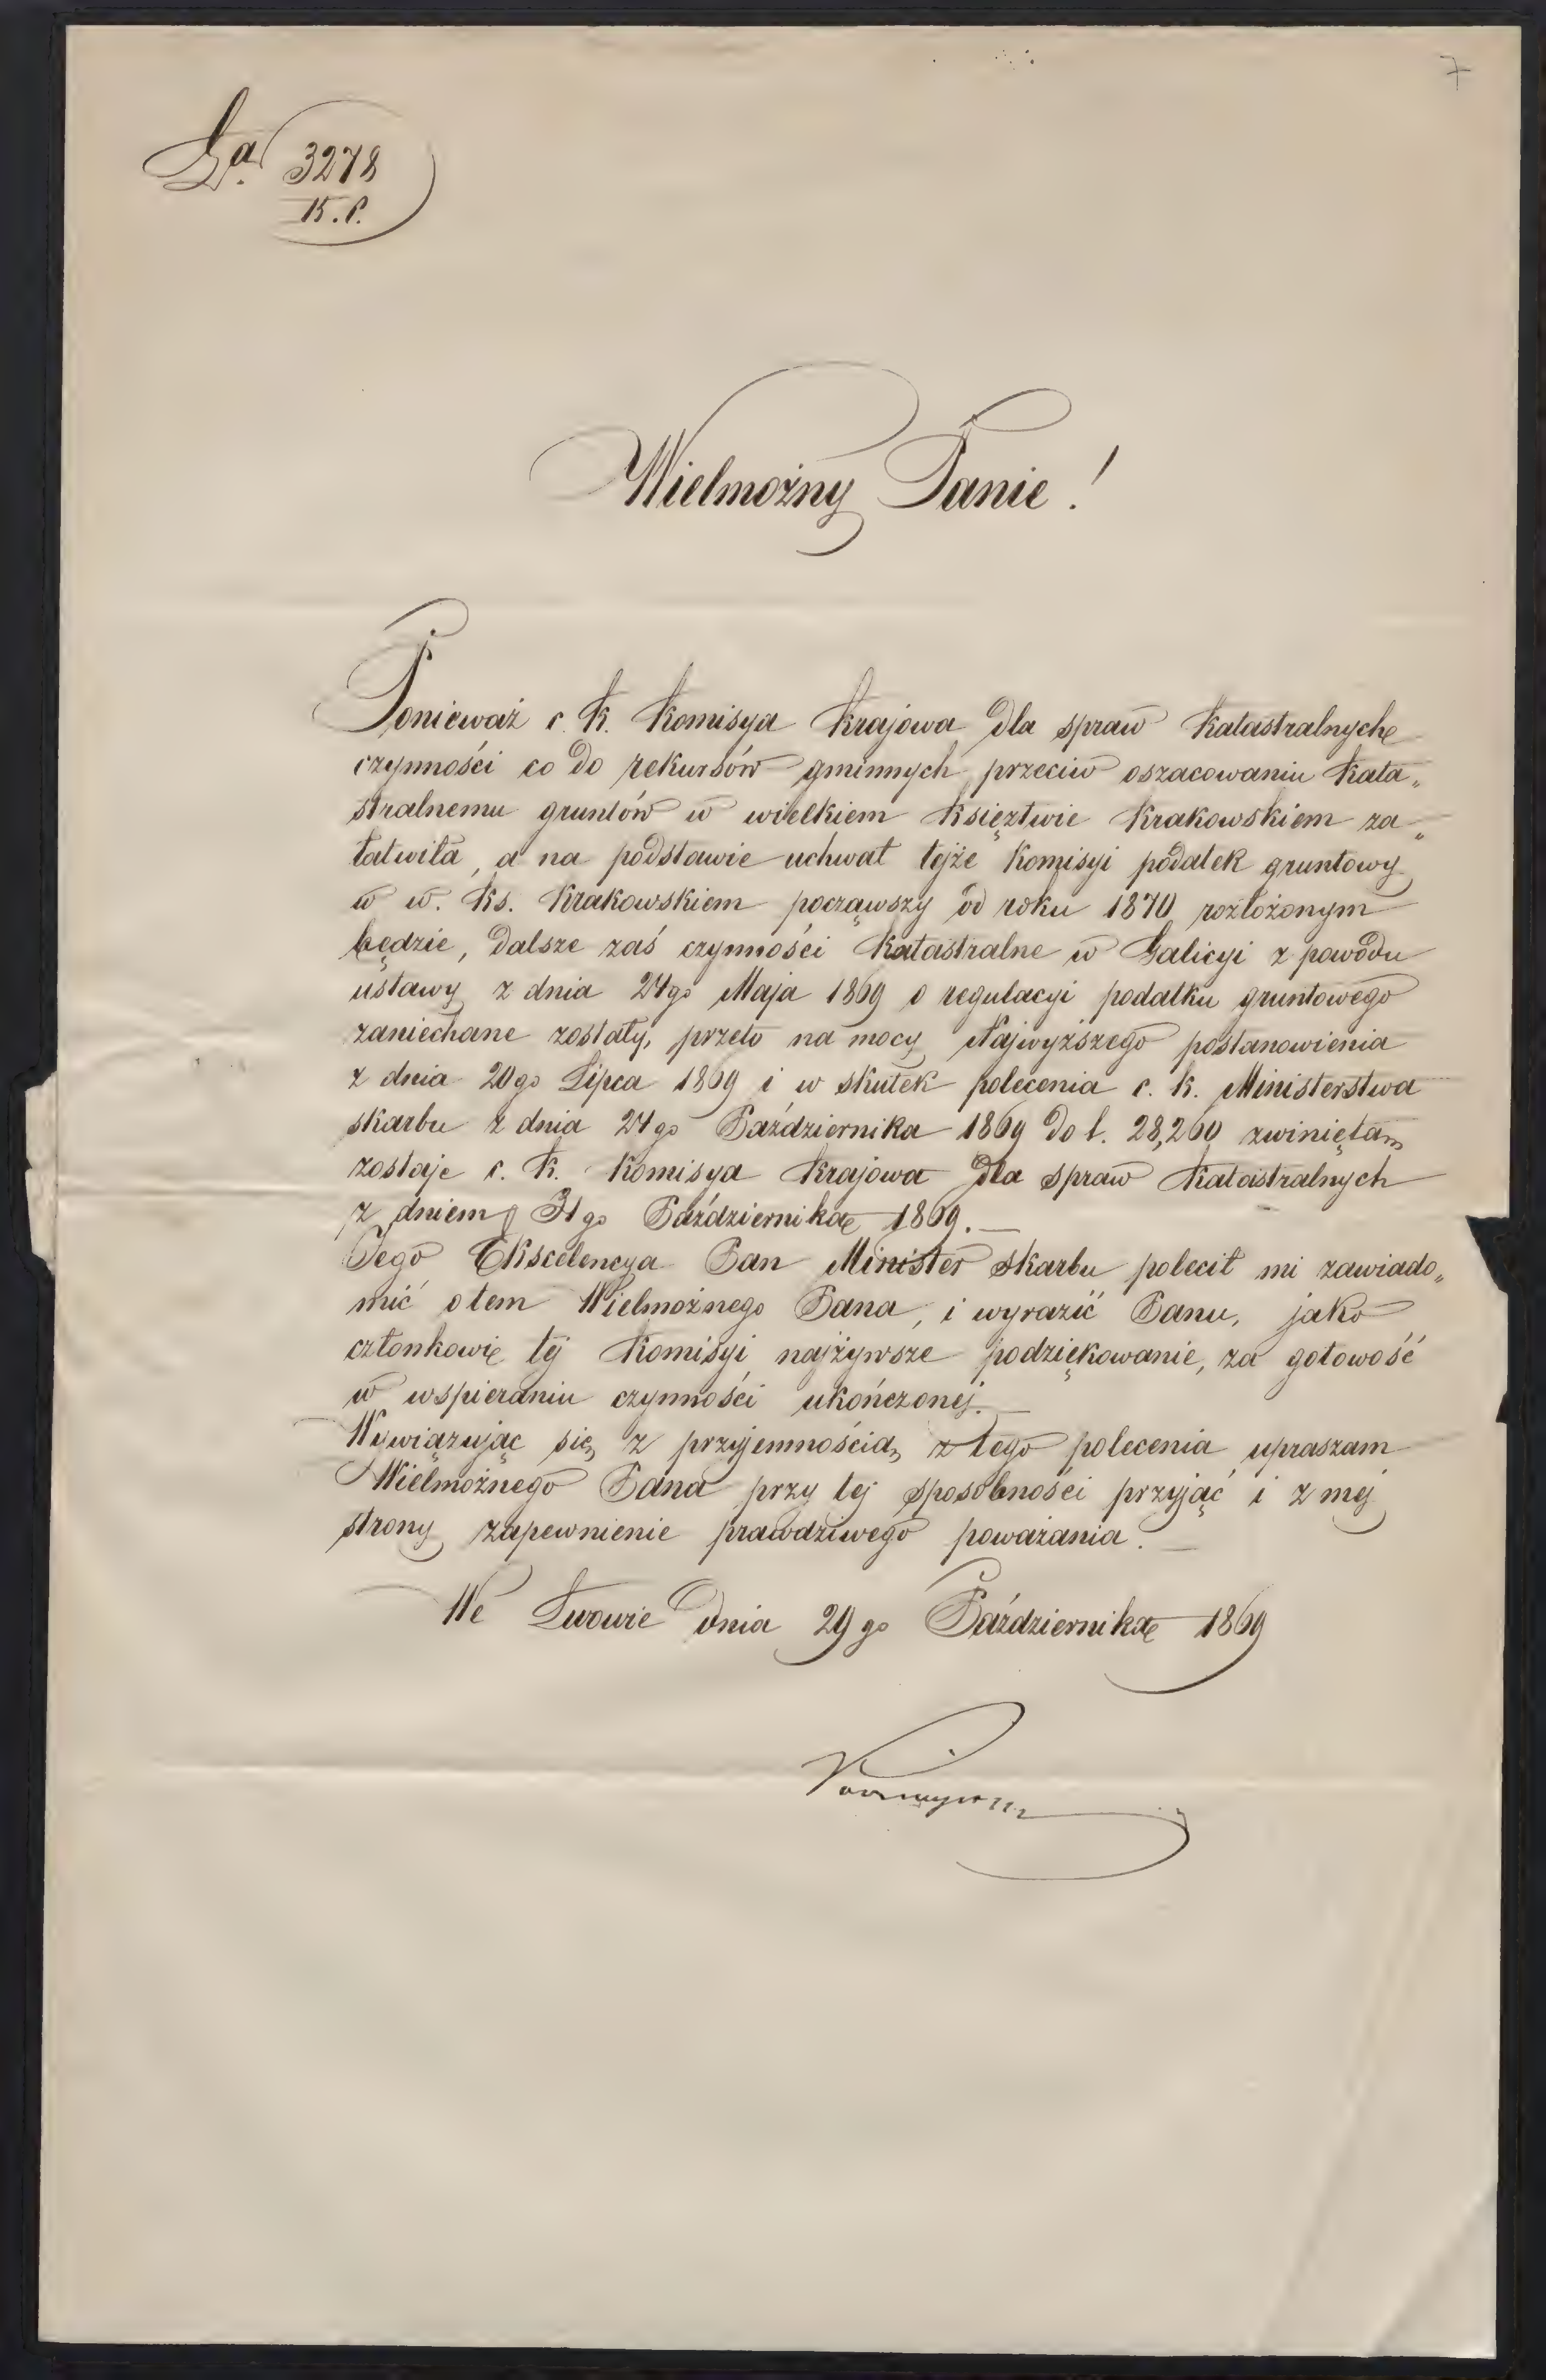 7
La. 3278
K. P.
Wielmożny Panie!
Ponieważ c. k. Komisya Krajowa dla spraw Katastralnych
czynności co do rekursów gminnych przeciw oszacowaniu kata„
stralnemu gruntów w wielkiem Księztwie Krakowskiem za„
łatwiła, a na podstawie uchwał tejże Komisyi podatek gruntowy
w w. Ks. Krakowskiem począwszy od roku 1870 rozłożonym
będzie, dalsze zaś czynności Katastralne w Galicyi z powodu
ustawy z dnia 24go Maja 1869 o regulacyi podatku gruntowego
zaniechane zostały, przeto na mocy Najwyższego postanowienia
z dnia 20go Lipca 1869 i w skutek polecenia c. k. Ministerstwa
skarbu z dnia 24go Października 1869 do l. 28,260 zwiniętą
zostaje c. k. Komisya Krajowa dla spraw Katastralnych
z dniem 31go Października 1869.
Jego Ekscelencya Pan Minister skarbu polecił mi zawiado„
mić o tem Wielmożnego Pana, i wyrazić Panu, jako
członkowi tej Komisyi najżywsze podziękowanie, za gotowość
w wspieraniu czynności ukończonej.
Wywiązując się z przyjemnością z tego polecenia upraszam
Wielmożnego Pana przy tej sposobności przyjąć i z mej
strony zapewnienie prawdziwego poważania.
We Lwowie dnia 29go Października 1869